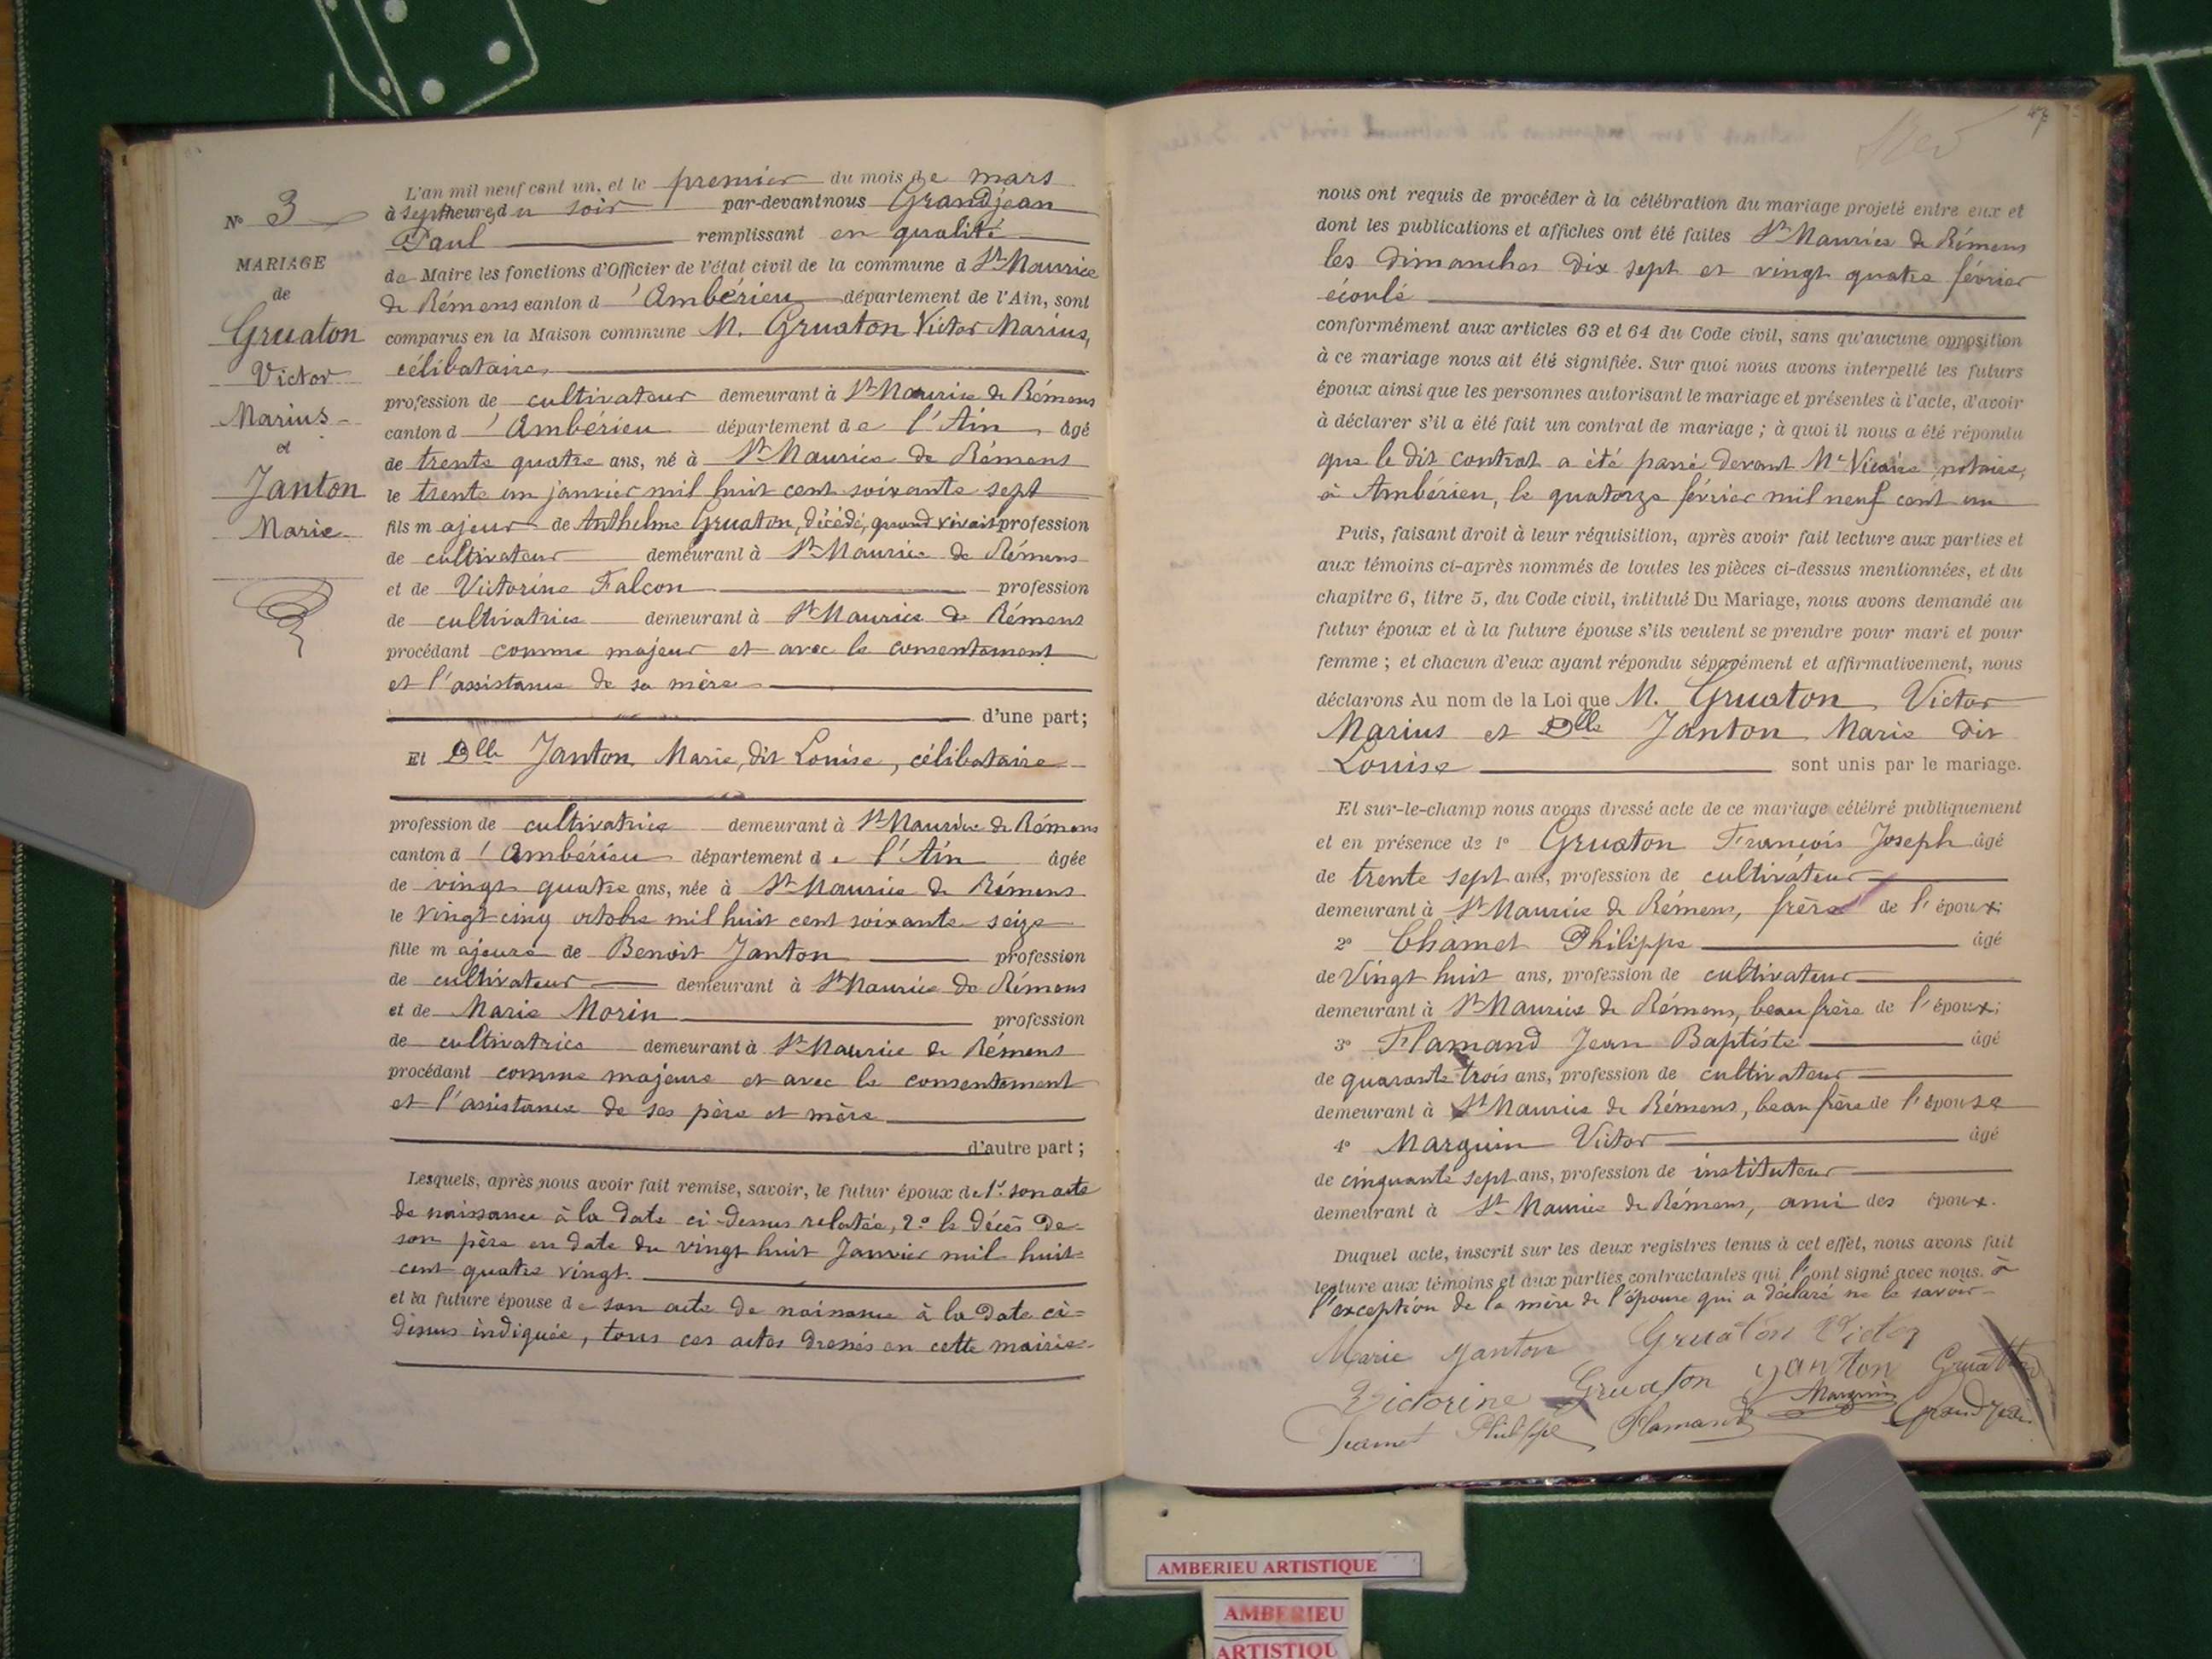 N° 3
MARIAGE
de
Gruaton
Victor
Marius
et
Janton
Marie
L'an mil neuf cent un, et le premier du mois de mars
à sept heures du soir par-devant nous Grandjean
Paul remplissant en qualité
de Maire les fonctions d'Officier de l'état civil de la commune d St Maurice
de Rémens canton d'Ambérieu département de l'Ain, sont
comparus en la Maison commune M. Gruaton Victor Marius,
célibataire,
profession de cultivateur demeurant à St Maurice de Rémens
canton d'Ambérieu département de l'Ain âgé
de trente quatre ans, né à St Maurice de Rémens
le trente un janvier mil huit cent soixante sept
fils majeur de Anthelme Gruaton, décédé, quand vivait profession
de cultivateur demeurant à St Maurice de Rémens
et de Victorine Falcon profession
de cultivatrice demeurant à St Maurice de Rémens
procédant comme majeur et avec le consentement
et l'assistance de sa mère
d'une part;
Et Dlle Janton Marie, dit Louise, célibataire
profession de cultivatrice demeurant à St Maurice de Rémens
canton d'Ambérieu département de l'Ain âgée
de vingt quatre ans, née à St Maurice de Rémens
le vingt cinq octobre mil huit cent soixante seize
fille majeure de Benoit Janton profession
de cultivateur demeurant à St Maurice de Rémens
et de Marie Morin profession
de cultivatrice demeurant à St Maurice de Rémens
procédant comme majeure et avec le consentement
et l'assistance de ses père et mère
d'autre part;
Lesquels, après nous avoir fait remise, savoir, le futur époux de 1° son acte
de naissance à la date ci-dessus relatée, 2° le décès de
son père en date du vingt huit Janvier mil huit
cent quatre vingt.
et la future épouse de son acte de naissance à la date ci=
dessus indiquée, tous ces actes dressés en cette mairie.
47
nous ont requis de procéder à la célébration du mariage projeté entre eux et
dont les publications et affiches ont été faites St Maurice de Rémens
les dimanches dix sept et vingt quatre février
écoulé
conformément aux articles 63 et 64 du Code civil, sans qu'aucune opposition
à ce mariage nous ait été signifiée. Sur quoi nous avons interpellé les futurs
époux ainsi que les personnes autorisant le mariage et présentes à l'acte, d'avoir
à déclarer s'il a été fait un contrat de mariage; à quoi il nous a été répondu
que le dit contrat a été passé devant Me Vicaire, notaire,
à Ambérieu, le quatorze février mil neuf cent un
Puis, faisant droit à leur réquisition, après avoir fait lecture aux parties et
aux témoins ci-après nommés de toutes les pièces ci-dessus mentionnées, et du
chapitre 6, titre 5, du Code civil, intitulé Du Mariage, nous avons demandé au
futur époux et à la future épouse s'ils veulent se prendre pour mari et pour
femme; et chacun d'eux ayant répondu séparément et affirmativement, nous
déclarons Au nom de la Loi que M. Gruaton Victor
Marius et Dlle Janton Marie dit
Louise sont unis par le mariage.
Et sur-le-champ nous avons dressé acte de ce mariage célébré publiquement
et en présence de 1° Gruaton François Joseph âgé
de trente sept ans, profession de cultivateur
demeurant à St Maurice de Rémens, frère de l'époux;
2° Chamet Philippe âgé
de vingt huit ans, profession de cultivateur
demeurant à St Maurice de Rémens, beau frère de l'époux;
3° Flamand Jean Baptiste âgé
de quarante trois ans, profession de cultivateur
demeurant à St Maurice de Rémens, beau frère de l'épouse
4° Marguin Victor âgé
de cinquante sept ans, profession de instituteur
demeurant à St Maurice de Rémens, ami des époux.
Duquel acte, inscrit sur les deux registres tenus à cet effet, nous avons fait
lecture aux témoins et aux parties contractantes qui l'ont signé avec nous. à
l'exception de la mère de l'épouse qui a déclaré ne le savoir
Marie Janton Gruaton Victor
Victorine Gruaton Janton Gruatton
Philippe Flamand Marguin Grandjean
AMBERIEU ARTISTIQUE
AMBERIEU
ARTISTIQU